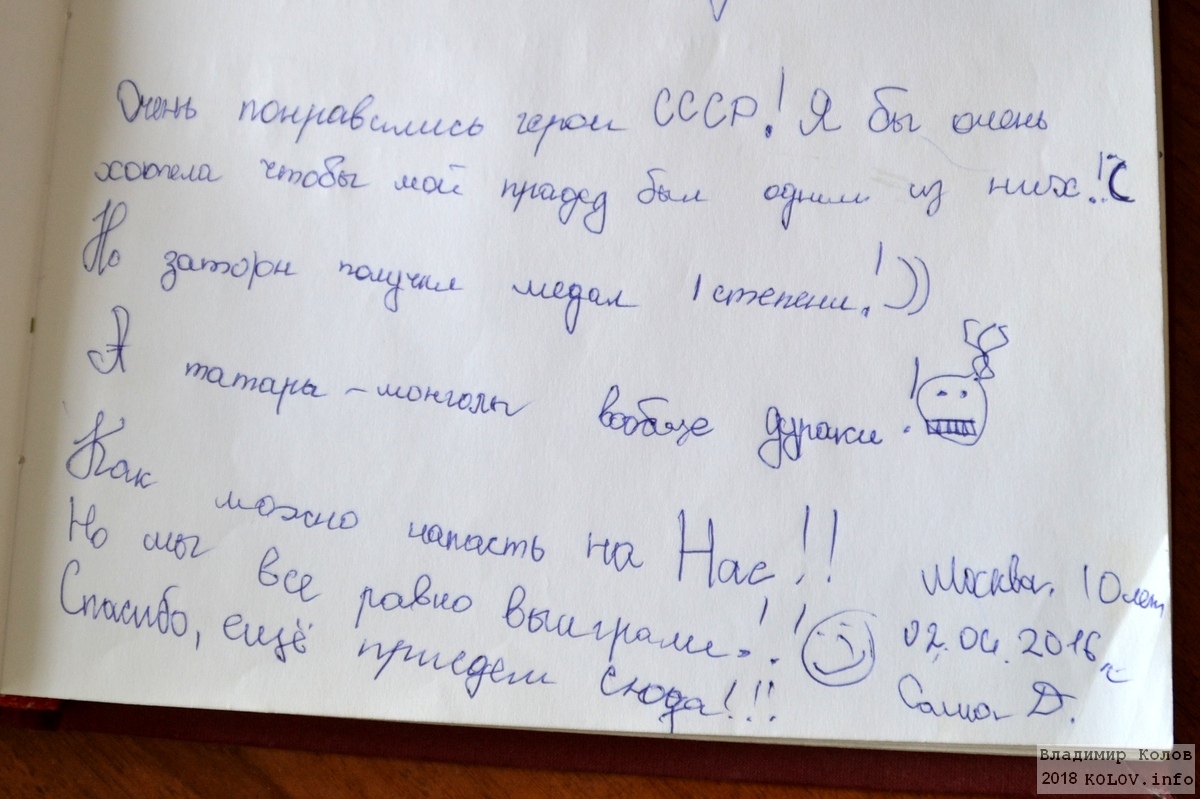 Очень понравились герои СССР! Я бы очень
хотела чтобы мой прадед был одним из них!:(
Но заторн получил медал 1 степени!))
А татары-монголы вообще дураки!
Как можно напасть на Нас!!
Но мы все равно выиграли!!
Спасибо, ещё приедем сюда!!!
Москва. 10 лет
02.04.2016 г.
Саша Д.
Владимир Колов
2018 KOLOV.info